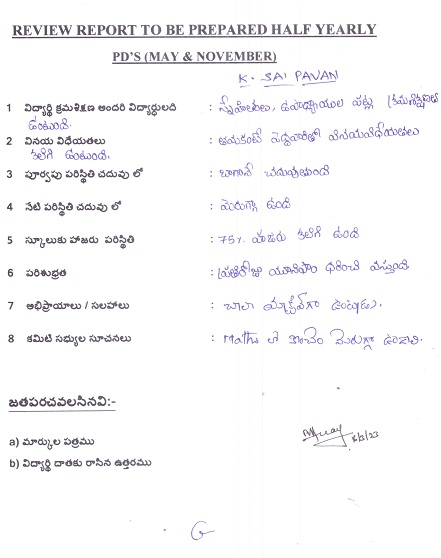 REVIEW REPORT TO BE PREPARED HALF YEARLY
PD'S (MAY & NOVEMBER)
K. SAI PAVAN
1 విద్యార్థి క్రమశిక్షణ అందరి విద్యార్థులది : స్నేహితులు, ఉపాధ్యాయుల పట్ల క్రమశిక్షణతో
ఉంటుంది.
2 వినయ విధేయతలు : తనకంటే పెద్దవారితో వినయవిధేయతలు
కలిగి ఉంటుంది.
3 పూర్వపు పరిస్థితి చదువు లో : బాగానే చదువుతుంది
4 నేటి పరిస్థితి చదువు లో : మెరుగ్గా ఉంది
5 స్కూలుకు హాజరు పరిస్థితి : 75% హాజరు కలిగి ఉంది
6 పరిశుభ్రత : ప్రతిరోజు యూనిఫాం ధరించి వస్తుంది
7 అభిప్రాయాలు / సలహాలు : చాలా యాక్టివ్‌గా ఉంటాడు.
8 కమిటి సభ్యుల సూచనలు : Maths లో కొంచెం మెరుగ్గా ఉండాలి.
జతపరచవలసినవి:-
a) మార్కుల పత్రము
b) విద్యార్థి దాతకు రాసిన ఉత్తరము
G